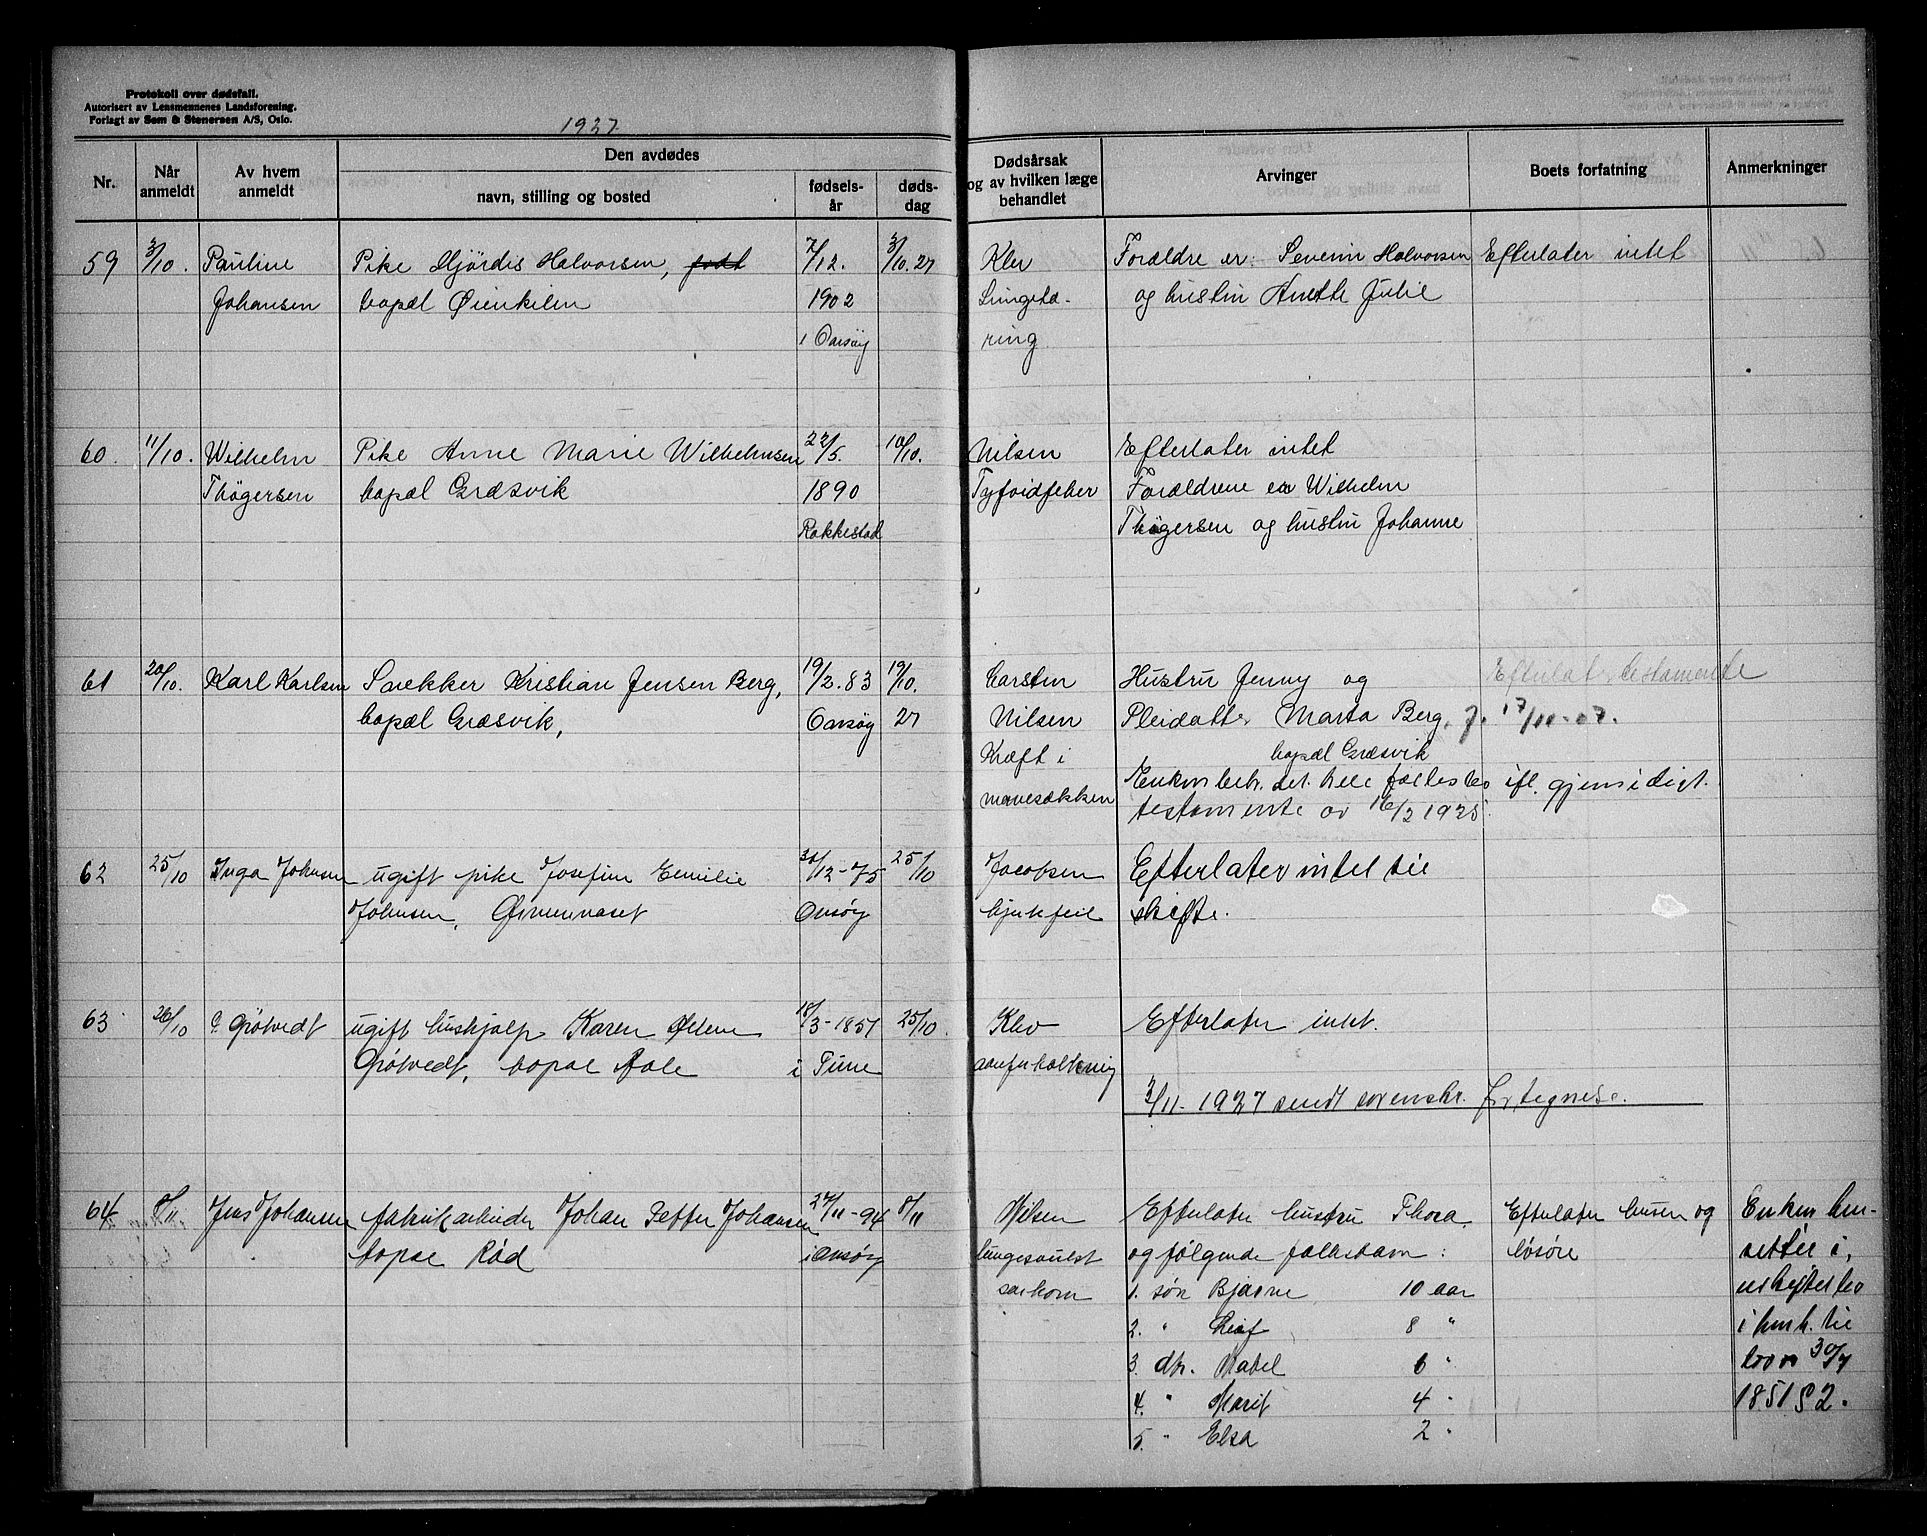 Protokoll over dødsfall.
Autorisert av Lensmennenes Landsforening.
Forlagt av Sem & Stenersen A/S, Oslo.
1927.
Nr.
Når anmeldt
Av hvem anmeldt
Den avdødes
navn, stilling og bosted
fødsels-år
døds-dag
Dødsårsak og av hvilken læge behandlet
Arvinger
Boets forfatning
Anmerkninger
59 3/10. Pauline Pike Hjördis Halvorsen, født 7/12. 3/10.27 Klev Forældre er: Severin Halvorsen Efterlater intet
Johansen bopæl Øienkilen 1902 Lungetæ- og hustru Anette Julie
i Onsøy ring
60. 11/10. Wilhelm Pike Anne Marie Wilhelmsen 22/5. 10/10. Nilsen Efterlater intet
Thøgersen bopæl Græsvik 1890 Tyfoidfeber Forældrene er Wilhelm
Rakkestad Thøgersen og hustru Johanne
61 20/10. Karl Karlsen Snekker Kristian Jensen Berg, 19/2.83 19/10. Carsten Hustru Jenny og Efterlat testamente
bopæl Græsvik, Onsøy 27 Nilsen Pleidatter Marta Berg, f. 17/11-07.
Kræft i bopæl Græsvik
mavesækken Enken beh. det hele fællesbo ifl. gjensidigt.
testamente av 16/2 1925.
62 25/10 Inga Johnsen ugift pike Josefine Emilie 30/12-75 25/10 Jacobsen Efterlater intet til
Johnsen, Onsøy hjertefeil skifte.
63 26/10 Grötvedt ugift hushjælp Karen Oline 18/3-1851 25/10. Klev Efterlater intet.
Grötvedt, bopæl Aale i Tune aareforkalkning
3/11-1927 sendt sorenskr. fortegnelse.
64 8/11. Jens Johansen fabrikarbeider Johan Petter Johansen 27/11-94 8/11 Nilsen Efterlater hustru Thora, Efterlater huser og Enken hen-
bopæl Rød i Onsøy lungesvulst og følgende fællesbarn: løsøre sitter i
sarkom 1. søn Bjarne 10 aar uskiftet bo
2. " Leif 8 " i henh. til
3. dtr. Mabel 6 " loven 30/7
4. " Marit 4 " 1851 § 2.
5. " Elsa 2 "